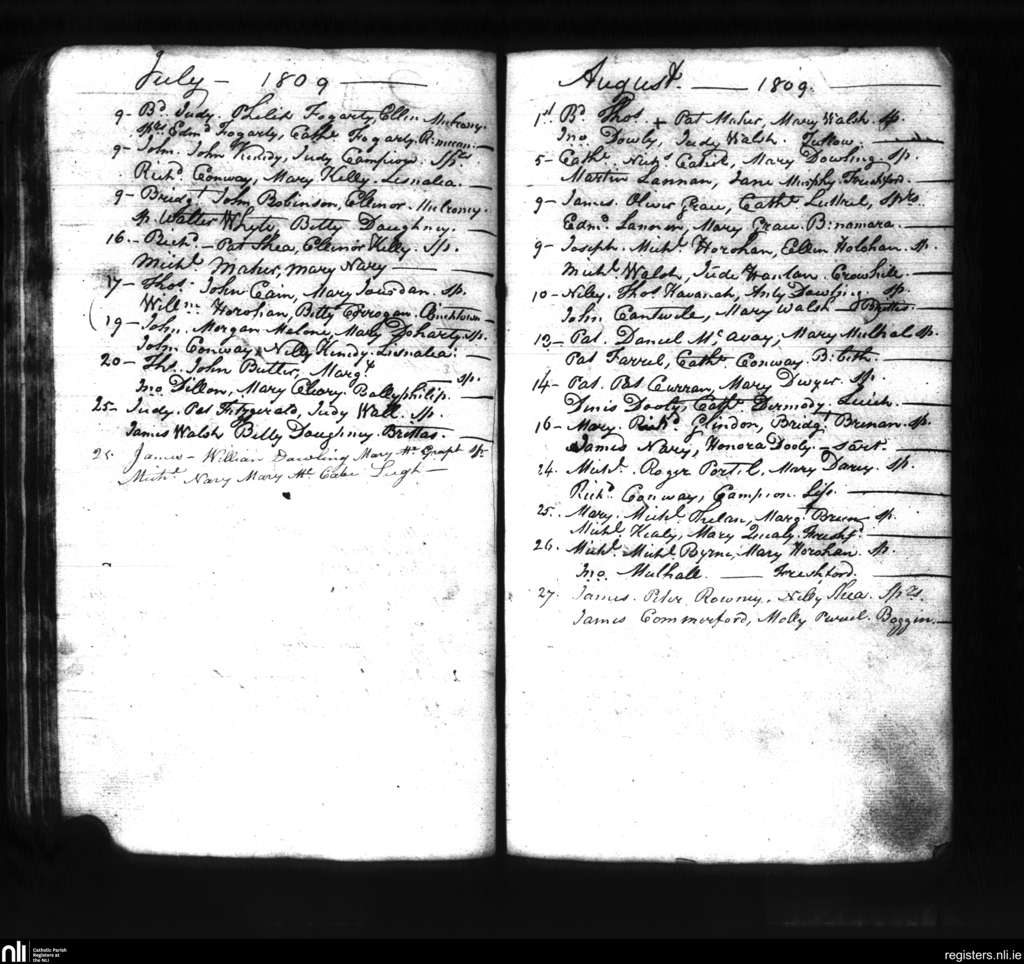 July — 1809
9 - Bd. Judy. Philip Fogarty, Ellin Mulroney.
Sps. Edmd Fogarty, Cathe Fogarty.
9 - John. John Kenidy, Judy Campion. Sps.
Richd Conway, Mary Kelly. Lisnalea.
9 - Bridgt John, Robinson, Ellenor. Mulroney.
sp. Walter Whyte, Betty Daughney.
16. - Richd. - Pat Shea, Elenor Kelly. Sp.
Michl Maher, Mary Nary
17 - Thos. John Cain, Mary Jourdan. sp.
Willm Horohan, Betty Corrogan.
19 - John. Morgan Malone, Mary Doharty. sp.
John Conway, Nelly Kenidy. Lisnalea.
20 - Ths. John Butler, Margt sp.
Jno Dillon, Mary Cleary. Ballyphilip.
25 - Judy. Pat Fitzgerald, Judy Wall. sp.
James Walsh Betty Daughney. Brittas.
25 James - William Dowling Mary sp
Michl Nary Mary Mc Cabe Leugh
August. — 1809.
1st. Bd. Thos. + Pat Maher, Mary Walsh. sp.
Jno. Dowly, Judy Walsh. Tullow.
5 - Cathe. Nichs Cahill, Mary Dowling. sp.
Martin Lannan, Jane Murphy. Freshford.
9 - James. Oliver Grace, Cathe Luttrel, Sps.
Edmd Lannon, Mary Grace. Binamara.
9 - Joseph. Michl. Horohan, Ellen Holohan. sp.
Michl. Walsh, Jude Hanlan. Crowhill.
10 - Nelly. Thos Kavanah, Anty Dowling. sp.
John Cantwell, Mary Walsh - Brittas
12 - Pat. Daniel Mc avay, Mary Mulhal sp.
Pat Farrel, Cathe Conway.
14 - Pat. Pat Curran, Mary Dwyer. sp.
Dinis Dooly, Cathe Dermody.
16 - Mary. Richd Glindon, Bridgt Brenan. sp.
James Nary, Honora Dooly.
24. Michl. Roger Mary Darcy. sp.
Richd Conway, Campion. Lis.
25. Mary. Michl. Phelan, Margt Breen sp.
Michl Healy, Mary Quealy. Freshf.
26. Michl. Michl. Byrne, Mary Horohan. sp.
Jno. Mulhall. — Freshford.
27. James. Peter Rowney, Nelly Shea. Sps.
James Commerford, Molly Purcel. Boggin.
nli Catholic Parish
Registers at
the NLI
registers.nli.ie